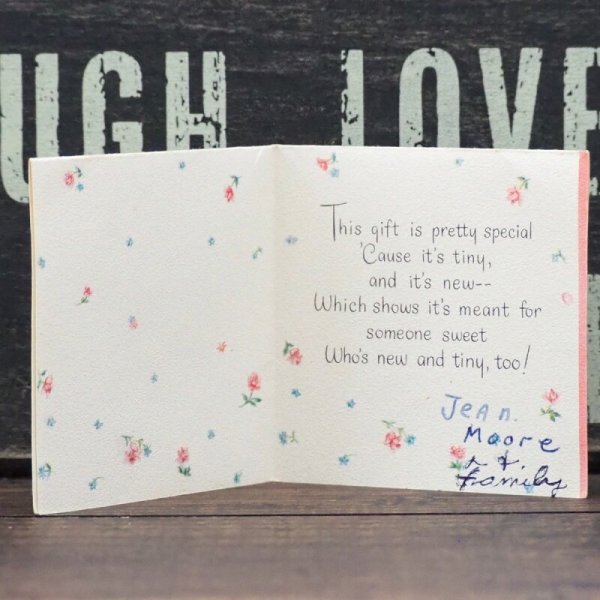 UGH LOVE
This gift is pretty special
'Cause it's tiny,
and it's new--
Which shows it's meant for
someone sweet
Who's new and tiny, too!
Jean.
Moore
&
Family